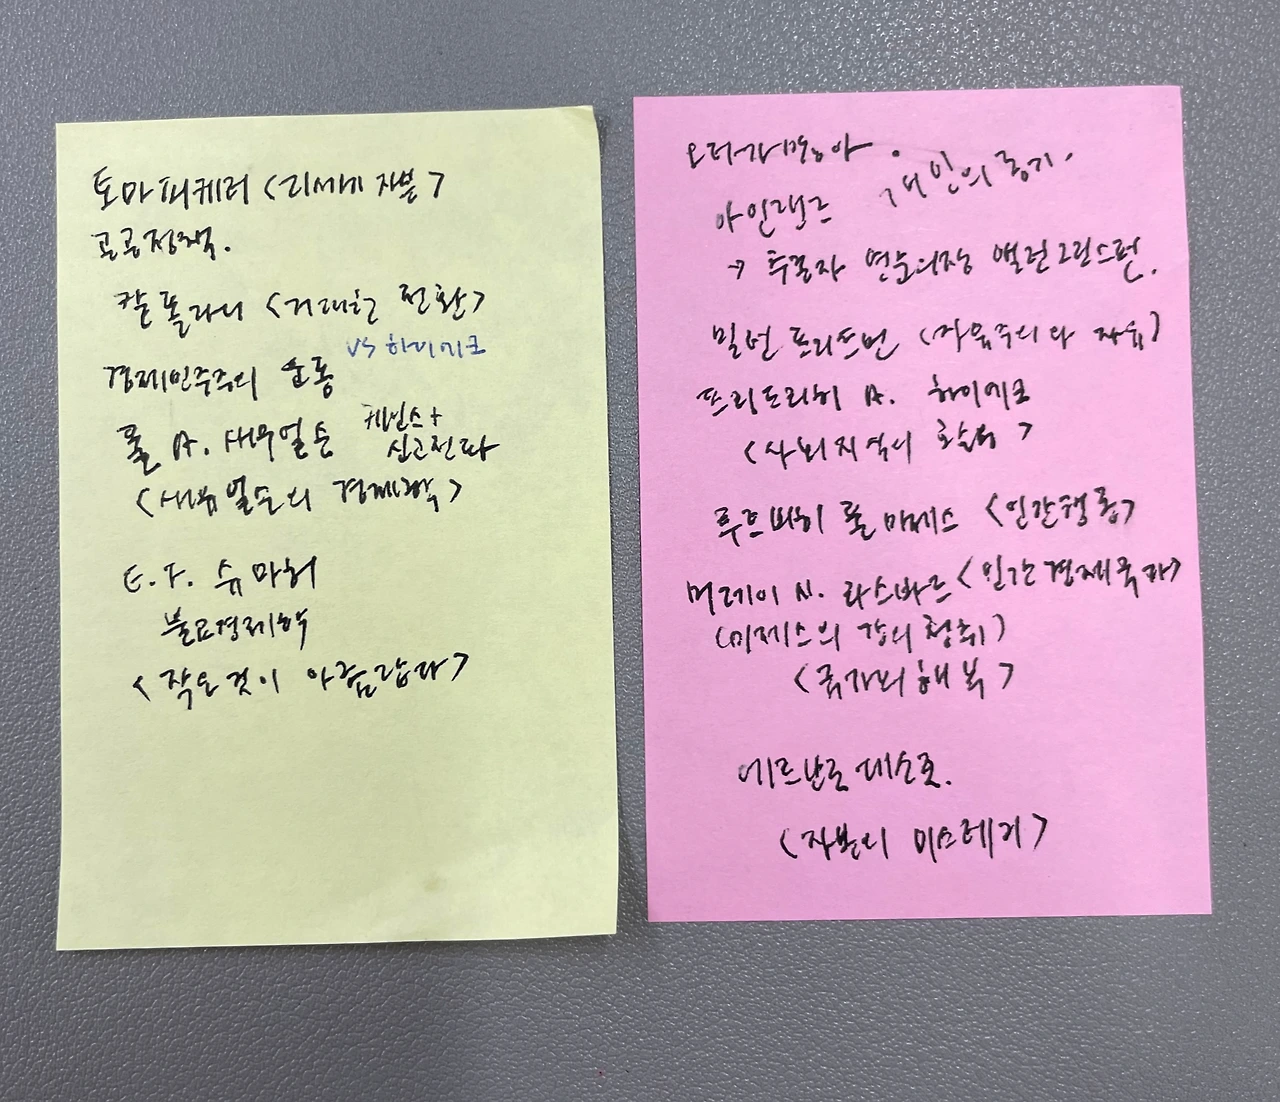 토마피케티 <21세기 자본>
공공정책.
칼 폴라니 <거대한 전환>
vs 하이에크
경제민주주의 운동
폴 A. 새무얼슨 케인스+
신고전파
<새뮤얼슨의 경제학>
E.F. 슈마허
불교경제학
<작은것이 아름답다>
오너가
아인랜드
→ 추종자 연준의장 앨런그린스펀.
밀턴 프리드먼 <자유주의와 자유>
프리드리히 A. 하이에크
<사회지식의 활용>
루트비히 폴 미제스 <인간행동>
머레이 N. 라스바드 <인간경제국가>
(미제스의 강의 청취)
<국가의 해부>
에르난도 데소토.
<자본의 미스테리>